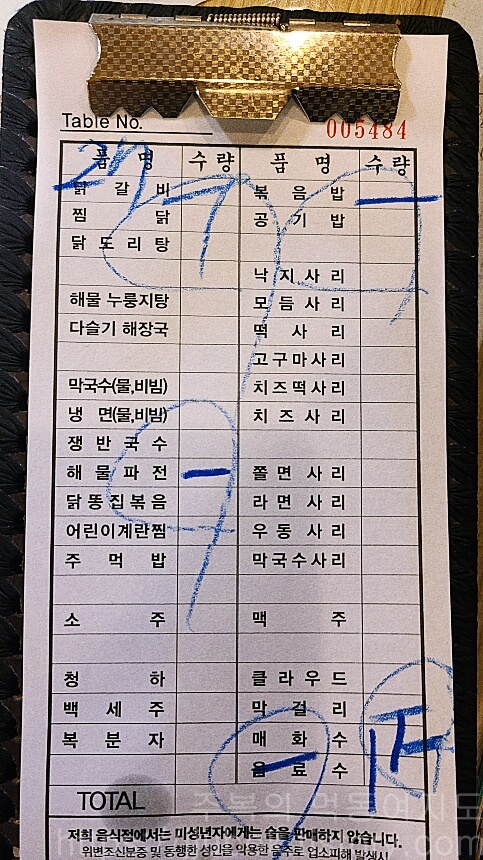 Table No.
005484
품 명 수량 품 명 수량
닭 갈 비 볶 음 밥
찜 닭 공 기 밥
닭 도 리 탕
낙 지 사 리
해물 누룽지탕 모 듬 사 리
다슬기 해장국 떡 사 리
고구마사리
막국수(물,비빔) 치즈떡사리
냉 면(물,비빔) 치 즈 사 리
쟁 반 국 수
해 물 파 전 쫄 면 사 리
닭똥집볶음 라 면 사 리
어린이계란찜 우 동 사 리
주 먹 밥 막국수사리
소 주 맥 주
청 하 클 라 우 드
백 세 주 막 걸 리
복 분 자 매 화 수
음 료 수
TOTAL
저희 음식점에서는 미성년자에게는 술을 판매하지 않습니다.
위변조신분증 및 동행한 성인을 악용한 음주로 업소피해 발생시